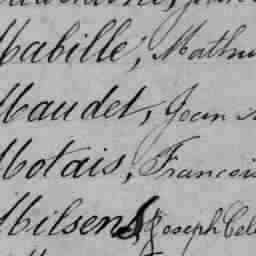 Mabille, Mathu
Maudet, Jean
Motais, Francois
Milsent, Joseph Cel